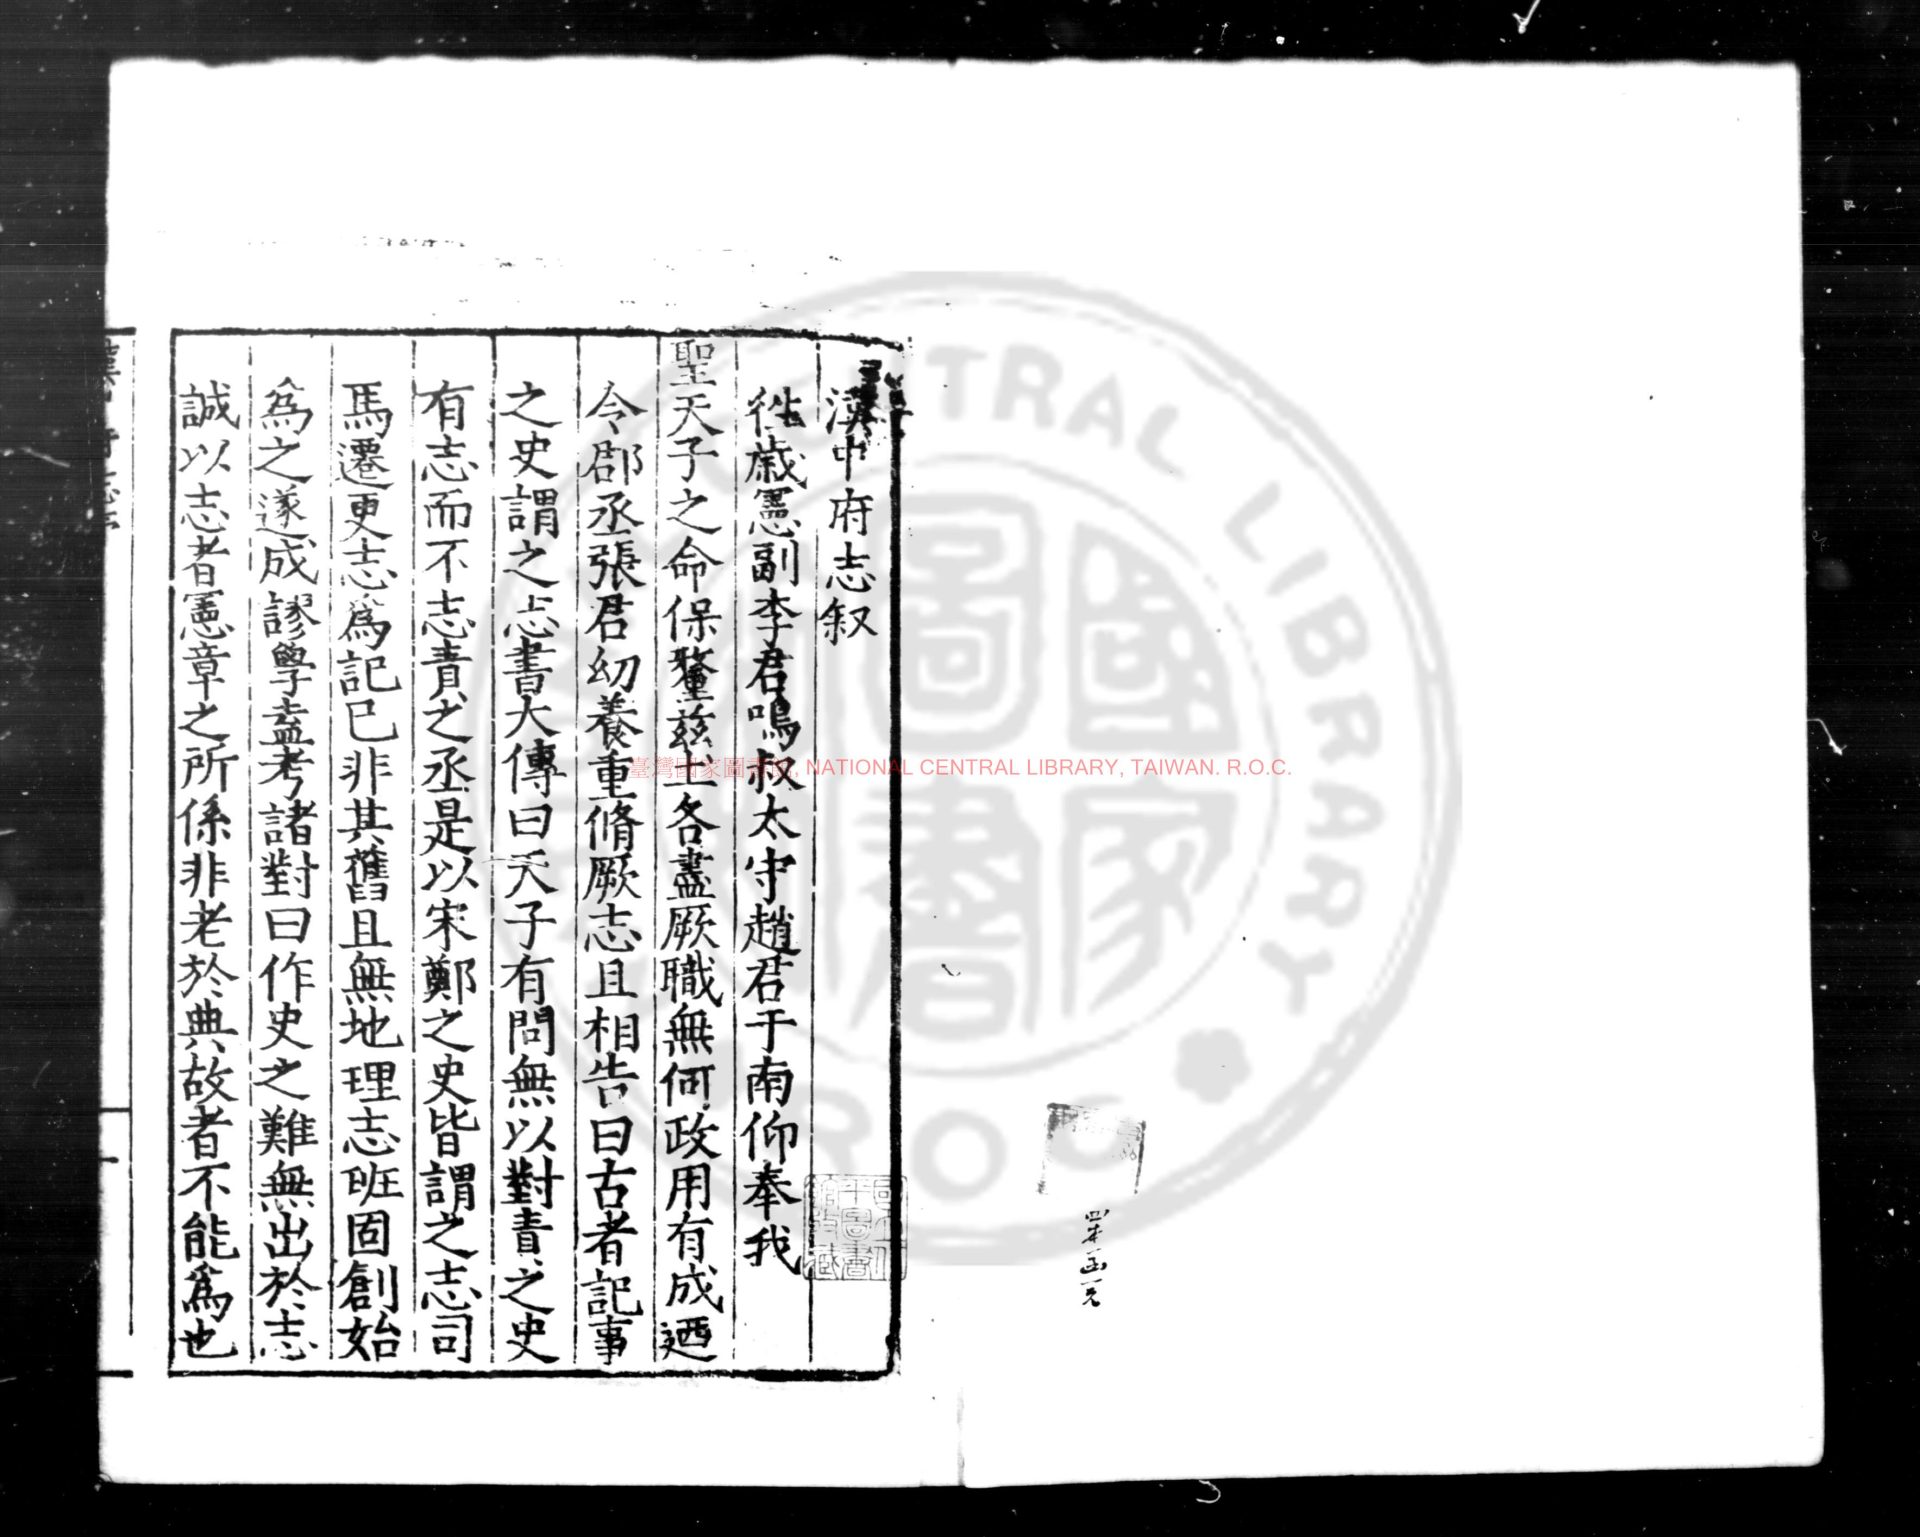 漢中府志叙
徃歲憲副李君鳴叔太守趙君于南仰奉我
聖天子之命保釐兹土各盡厥職無何政用有成迺
令郡丞張君幼養重脩厥志且相告曰古者記事
之史謂之志書大傳曰天子有問無以對責之史
有志而不志責之丞是以宋鄭之史皆謂之志司
馬遷更志爲記已非其舊且無地理志班固創始
爲之遂成謬學盍考諸對曰作史之難無出於志
誠以志者憲章之所係非老於典故者不能爲也
臺灣國家圖書館, NATIONAL CENTRAL LIBRARY, TAIWAN. R.O.C.
CENTRAL LIBRARY
國家圖書館
R.O.C.